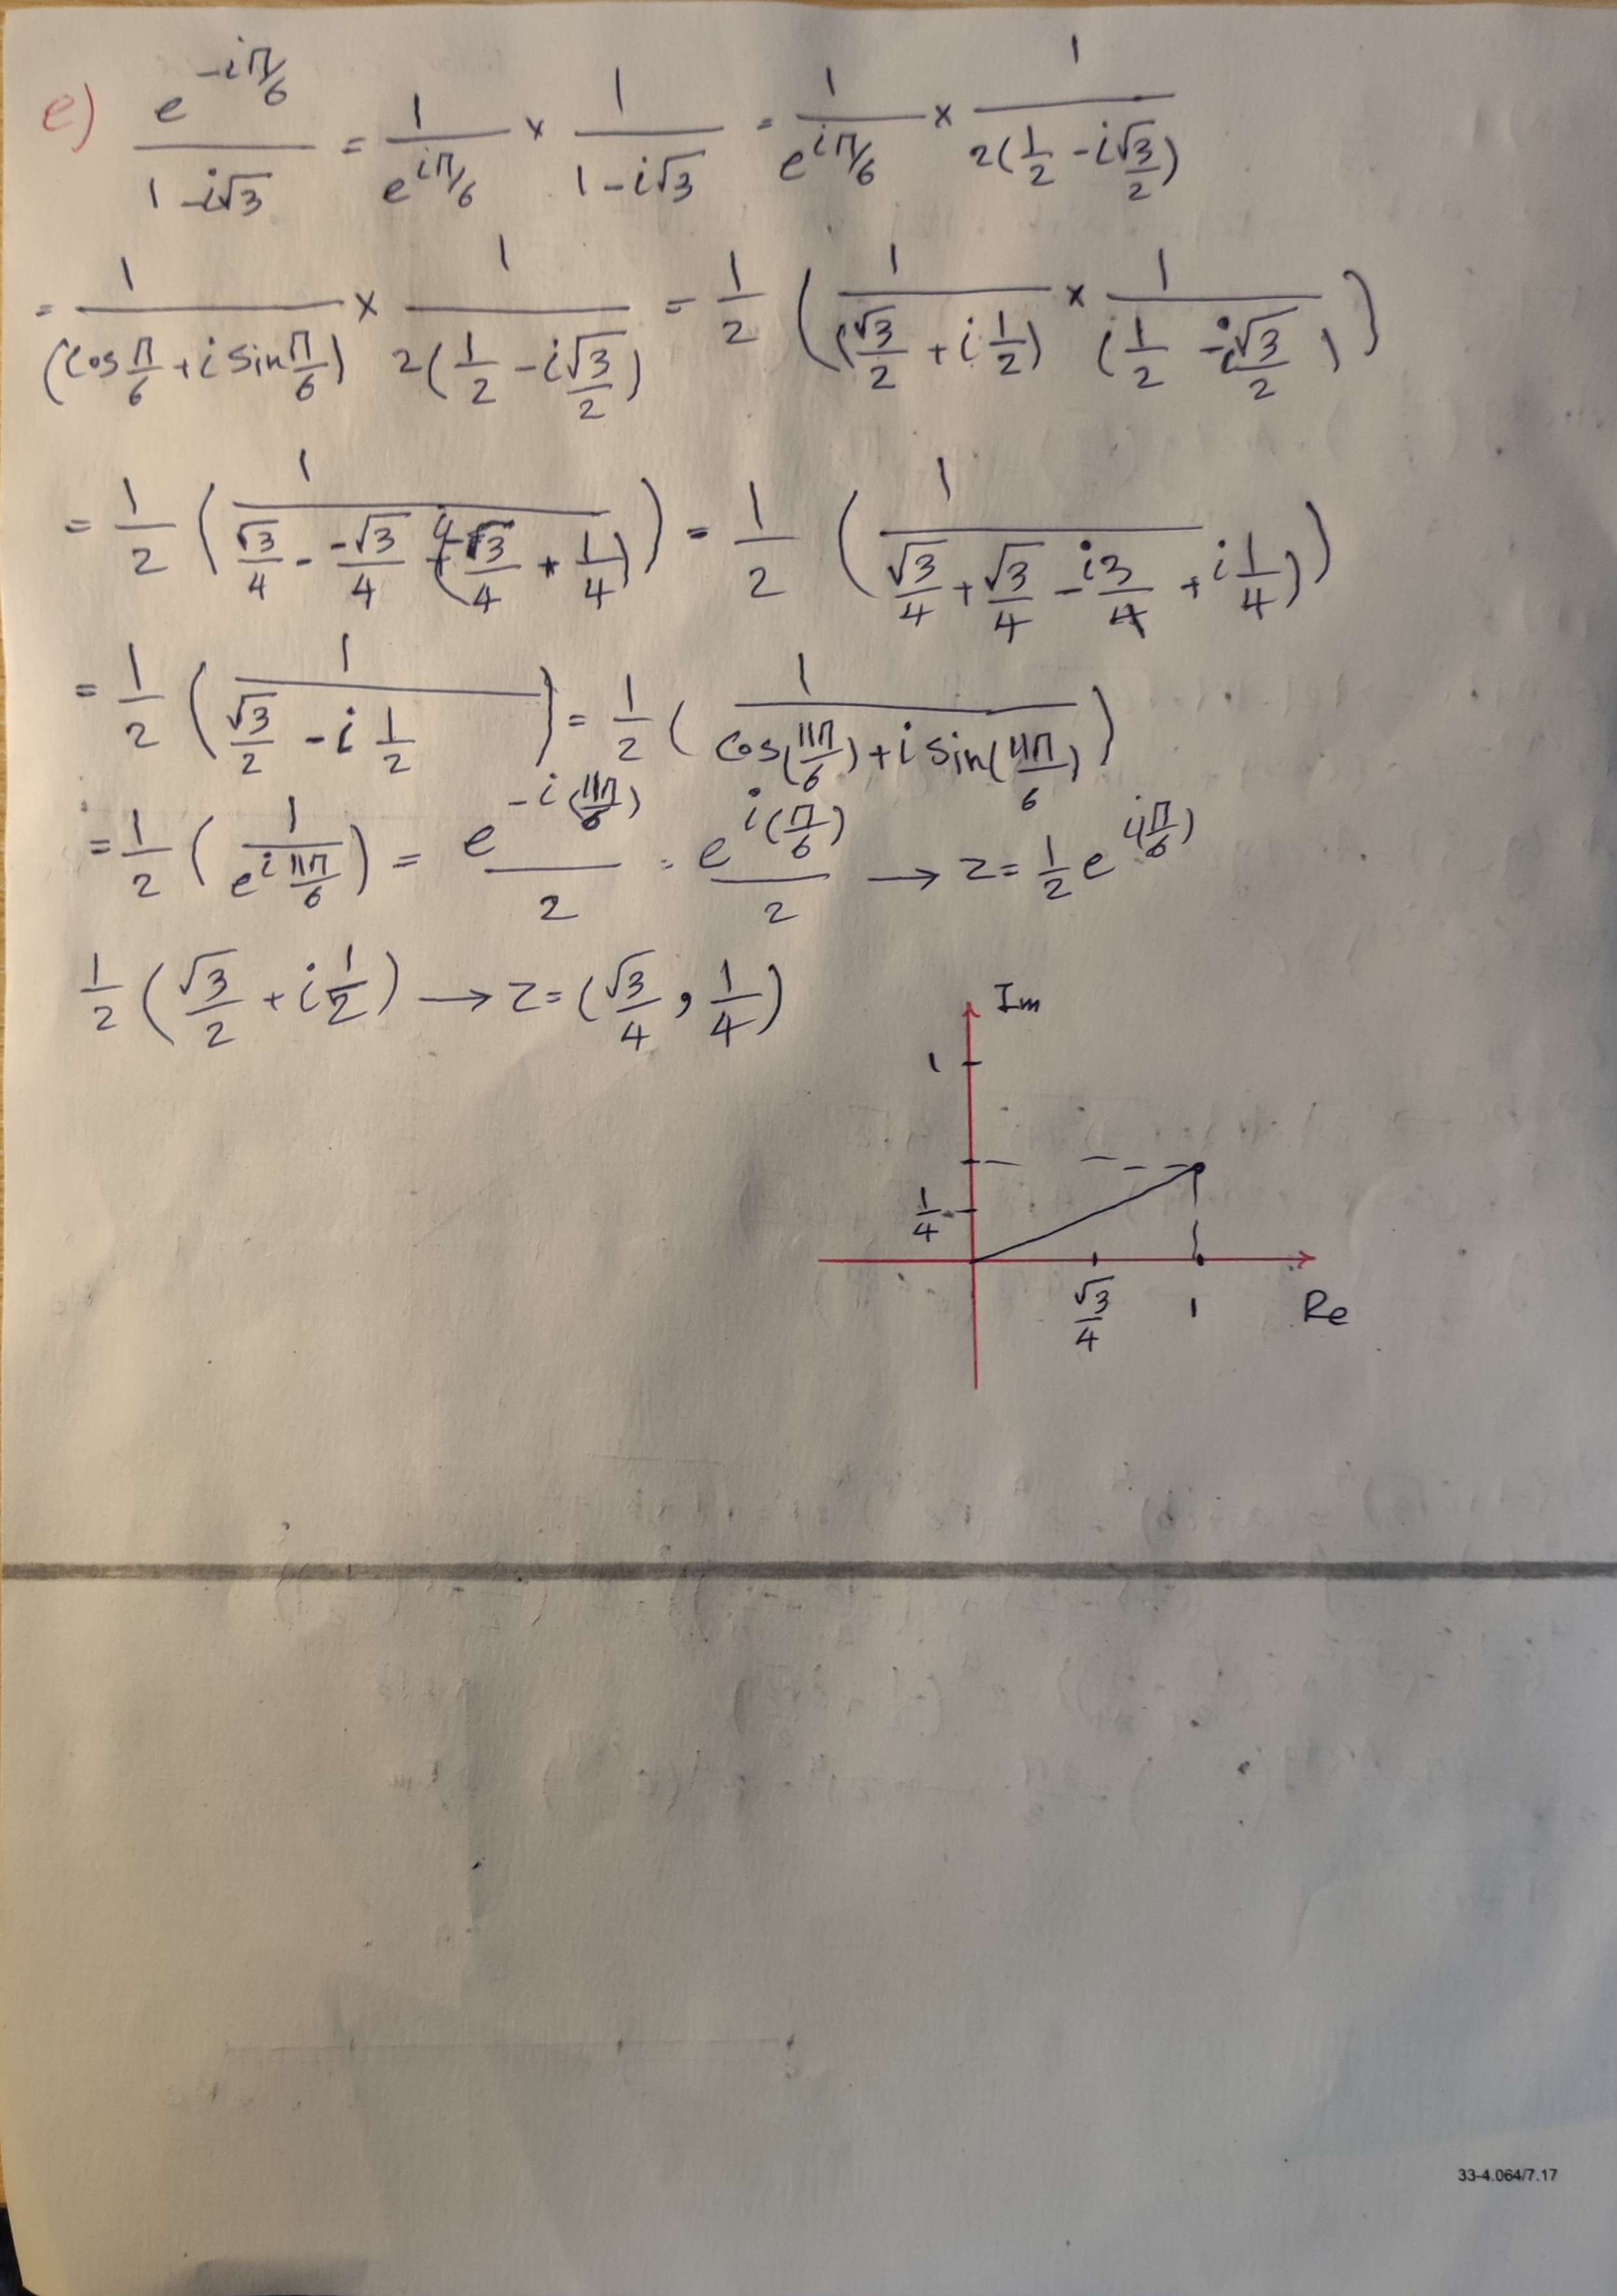 e) e^{-iπ/6} / (1 - i√3) = 1/e^{iπ/6} × 1/(1 - i√3) = 1/e^{iπ/6} × 1/(2(1/2 - i√3/2))
= 1/(cos π/6 + i sin π/6) × 1/(2(1/2 - i√3/2)) = 1/2 (1/(√3/2 + i 1/2) × 1/(1/2 - i√3/2))
= 1/2 (1/(√3/4 - -√3/4 + √3/4 + 1/4)) = 1/2 (1/(√3/4 + √3/4 - i3/4 + i 1/4))
= 1/2 (1/(√3/2 - i 1/2)) = 1/2 (1/(cos(11π/6) + i sin(11π/6)))
= 1/2 (1/e^{i 11π/6}) = e^{-i(11π/6)}/2 = e^{i(π/6)}/2 → z = 1/2 e^{i(π/6)}
1/2 (√3/2 + i 1/2) → z = (√3/4, 1/4)
Im
1
1/4
√3/4 1 Re
33-4.064/7.17